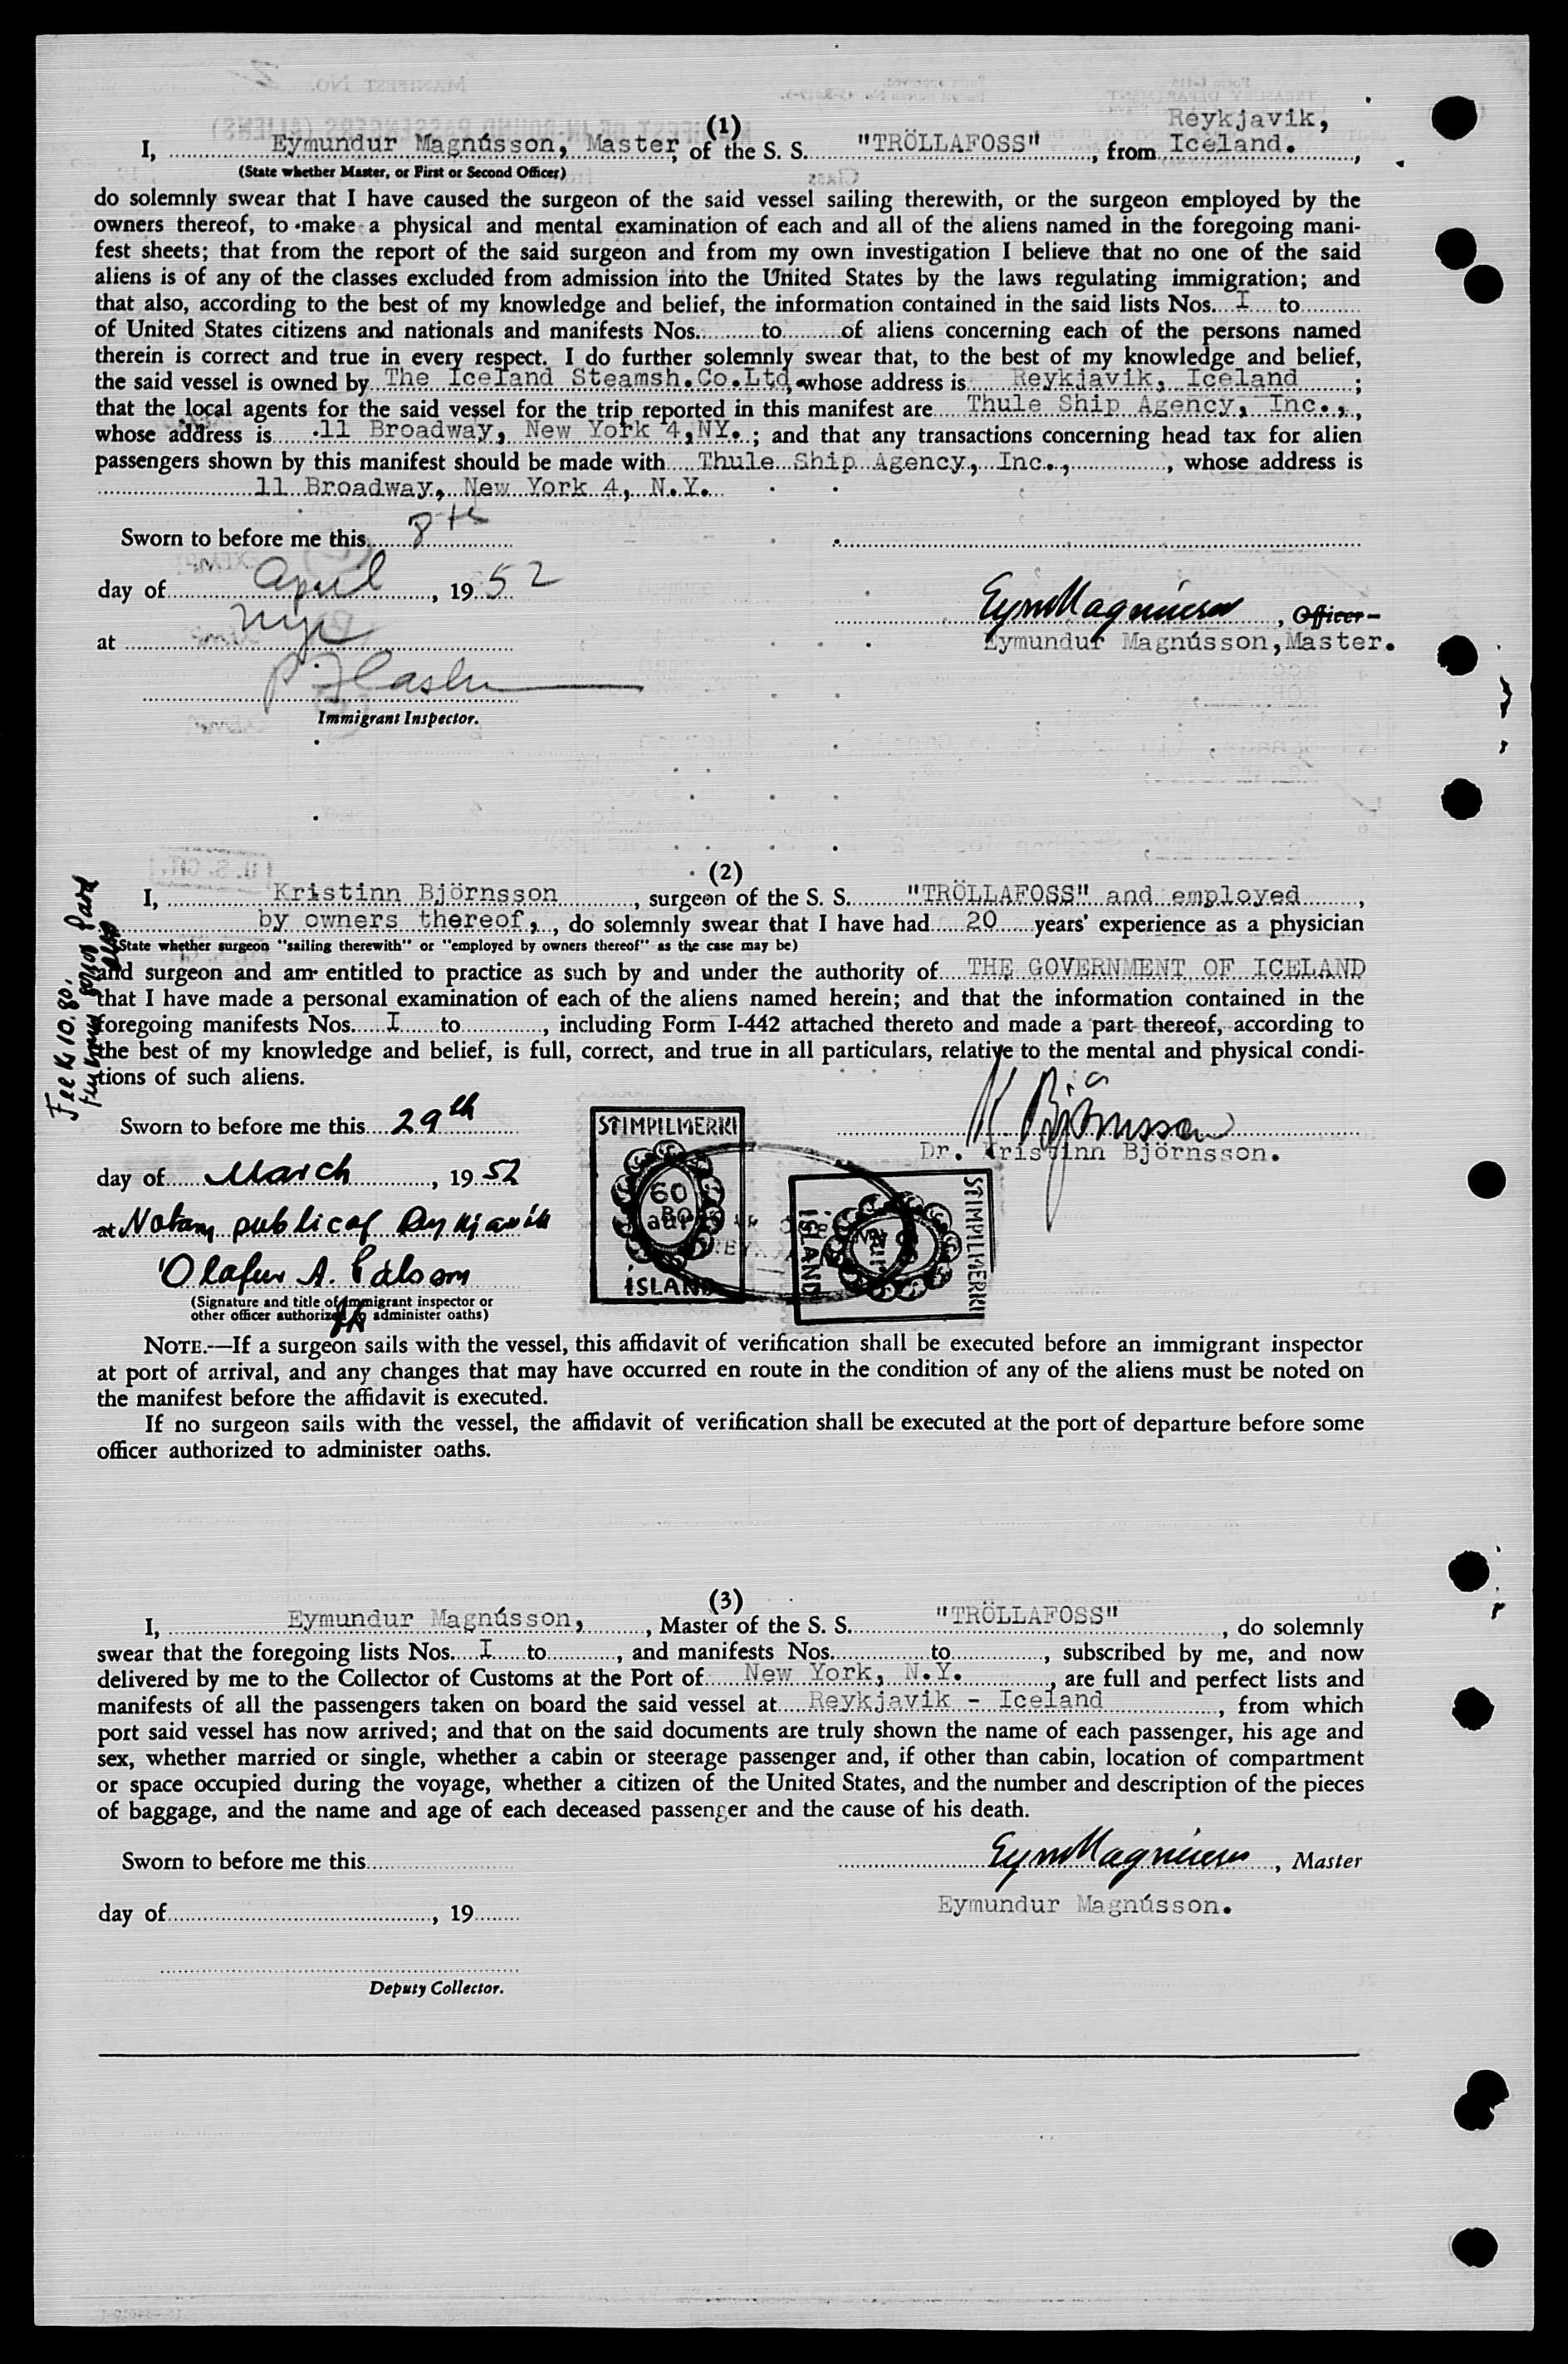 (1)
Reykjavik,
I, Eymundur Magnússon, Master, of the S. S. "TRÖLLAFOSS", from Iceland.,
(State whether Master, or First or Second Officer)
do solemnly swear that I have caused the surgeon of the said vessel sailing therewith, or the surgeon employed by the
owners thereof, to make a physical and mental examination of each and all of the aliens named in the foregoing mani-
fest sheets; that from the report of the said surgeon and from my own investigation I believe that no one of the said
aliens is of any of the classes excluded from admission into the United States by the laws regulating immigration; and
that also, according to the best of my knowledge and belief, the information contained in the said lists Nos. I to
of United States citizens and nationals and manifests Nos. to of aliens concerning each of the persons named
therein is correct and true in every respect. I do further solemnly swear that, to the best of my knowledge and belief,
the said vessel is owned by The Iceland Steamsh.Co.Ltd. whose address is Reykjavik, Iceland ;
that the local agents for the said vessel for the trip reported in this manifest are Thule Ship Agency, Inc.,,
whose address is 11 Broadway, New York 4, NY. ; and that any transactions concerning head tax for alien
passengers shown by this manifest should be made with Thule Ship Agency, Inc., , whose address is
11 Broadway, New York 4, N.Y.
Sworn to before me this 8th
day of April, 1952
EymMagnússon, Officer
at nyc
Eymundur Magnússon, Master.
Immigrant Inspector.
(2)
I, Kristinn Björnsson, surgeon of the S. S. "TRÖLLAFOSS" and employed,
by owners thereof,, do solemnly swear that I have had 20 years' experience as a physician
(State whether surgeon "sailing therewith" or "employed by owners thereof" as the case may be)
and surgeon and am entitled to practice as such by and under the authority of THE GOVERNMENT OF ICELAND
that I have made a personal examination of each of the aliens named herein; and that the information contained in the
foregoing manifests Nos. I to , including Form I-442 attached thereto and made a part thereof, according to
the best of my knowledge and belief, is full, correct, and true in all particulars, relative to the mental and physical condi-
tions of such aliens.
Fee Kr 10.80.
Sworn to before me this 29th
K Björnsson
Dr. Kristinn Björnsson.
day of March, 1952
at Notary public of Reykjavík
Ólafur A. Pálsson
(Signature and title of immigrant inspector or
other officer authorized to administer oaths)
STIMPILMERKI
60
aur
ÍSLAND
STIMPILMERKI
ÍSLAND
NOTE.—If a surgeon sails with the vessel, this affidavit of verification shall be executed before an immigrant inspector
at port of arrival, and any changes that may have occurred en route in the condition of any of the aliens must be noted on
the manifest before the affidavit is executed.
If no surgeon sails with the vessel, the affidavit of verification shall be executed at the port of departure before some
officer authorized to administer oaths.
(3)
I, Eymundur Magnússon, , Master of the S. S. "TRÖLLAFOSS" , do solemnly
swear that the foregoing lists Nos. I to , and manifests Nos. to , subscribed by me, and now
delivered by me to the Collector of Customs at the Port of New York, N.Y. , are full and perfect lists and
manifests of all the passengers taken on board the said vessel at Reykjavik - Iceland , from which
port said vessel has now arrived; and that on the said documents are truly shown the name of each passenger, his age and
sex, whether married or single, whether a cabin or steerage passenger and, if other than cabin, location of compartment
or space occupied during the voyage, whether a citizen of the United States, and the number and description of the pieces
of baggage, and the name and age of each deceased passenger and the cause of his death.
Sworn to before me this
EymMagnússon, Master
day of , 19
Eymundur Magnússon.
Deputy Collector.